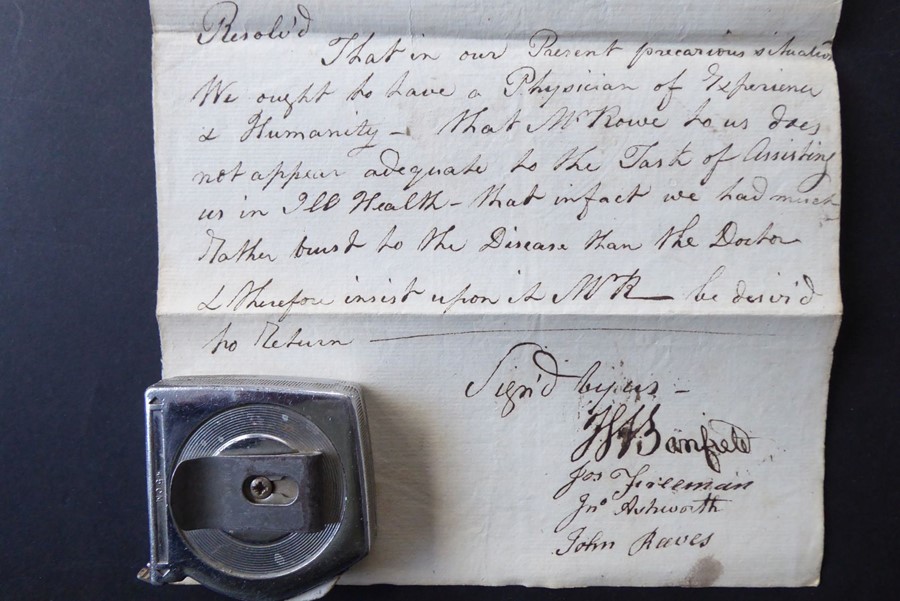 Resolv'd
That in our Present precarious situation
We ought to have a Physician of Experience
& Humanity - that Mr Rowe to us does
not appear adequate to the Task of Assisting
us in Ill Health - that infact we had much
Rather trust to the Disease than the Doctor
& therefore insist upon it Mr R— be desir'd
to Return —
Sign'd by us -
Banfield
Jos Freeman
Jno Ashworth
John Reeves